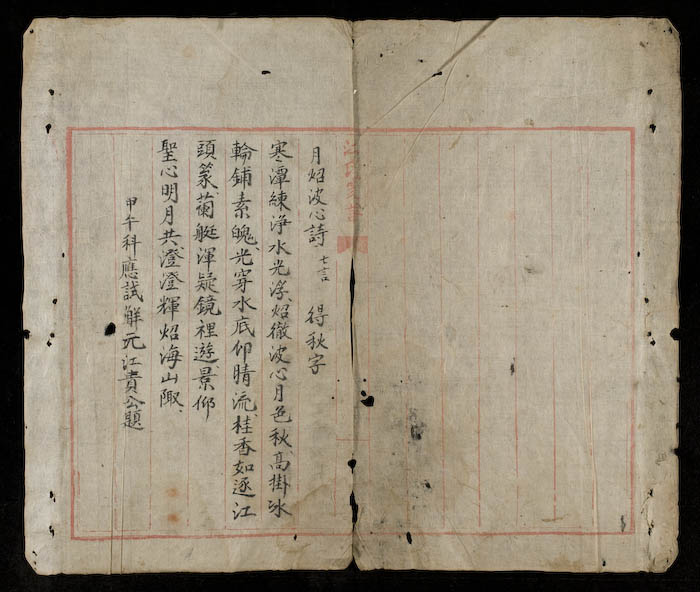 月炤波心詩 七言 得秋字
寒潭練淨水光浮、炤徹波心月色秋、高掛冰
輪鋪素魄、光穿水底仰晴流、桂香如逐江
頭篆、蘭艇渾疑鏡裡遊、景仰
聖心明月共澄、澄輝炤海山陬、
甲午科應試觧元江貴公題